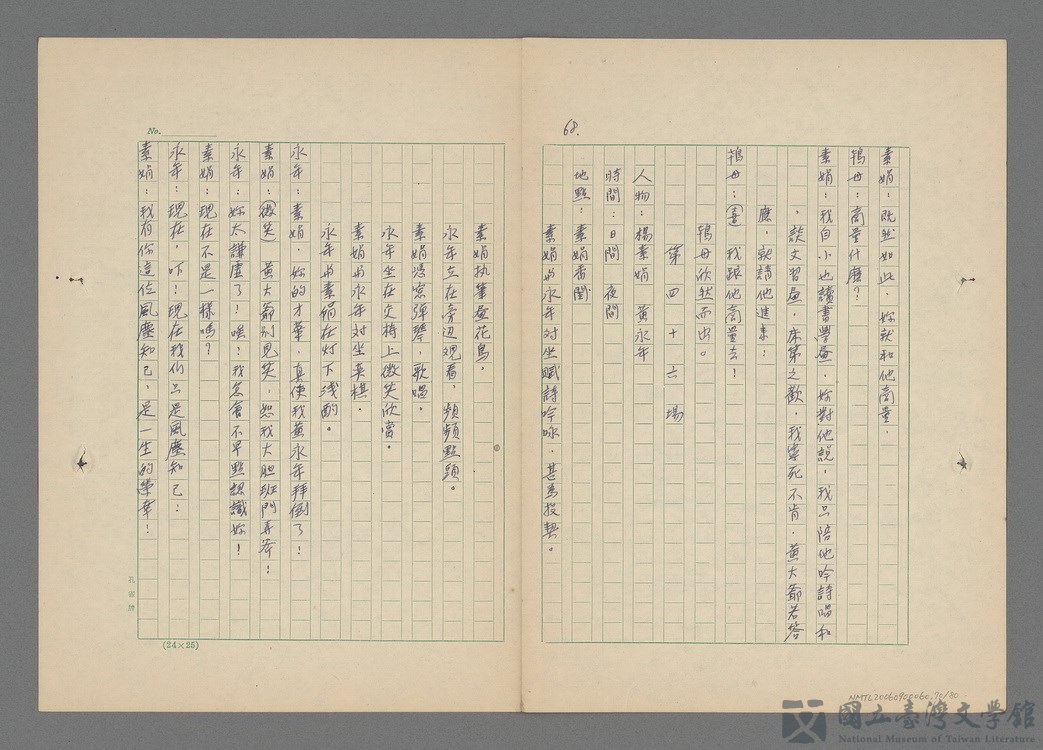 68.
素娟：既然如此，妳就和他商量。
鴇母：商量什麼？
素娟：我自小也讀書學畫，妳對他說，我只陪他吟詩唱和
，談文習畫，床第之歡，我寧死不肯。黃大爺若答
應，就請他進來：
鴇母：（喜）我跟他商量去！
鴇母欣然而出。
第四十六場
人物：楊素娟　黃永年
時間：日間　夜間
地點：素娟香閨
素娟與永年對坐賦詩吟咏，甚為投契。
No.
素娟执筆畫花鳥。
永年立在旁边观看，頻頻點頭。
素娟憑窓彈琴，歌唱。
永年坐在交椅上微笑欣賞。
素娟與永年对坐奕棋。
永年與素娟在灯下浅酌。
永年：素娟，妳的才華，真使我黃永年拜倒了！
素娟：（微笑）黃大爺別見笑，恕我大胆班門弄斧！
永年：妳太謙虛了！唉！我怎會不早點認識妳！
素娟：現在不是一樣嗎？
永年：現在，吓！現在我们只是風塵知己：
素娟：我有你這位風塵知己，是一生的榮幸！
孔雀牌
(24×25)
NMTL20060900060.70/80
國立臺灣文學館
National Museum of Taiwan Literature